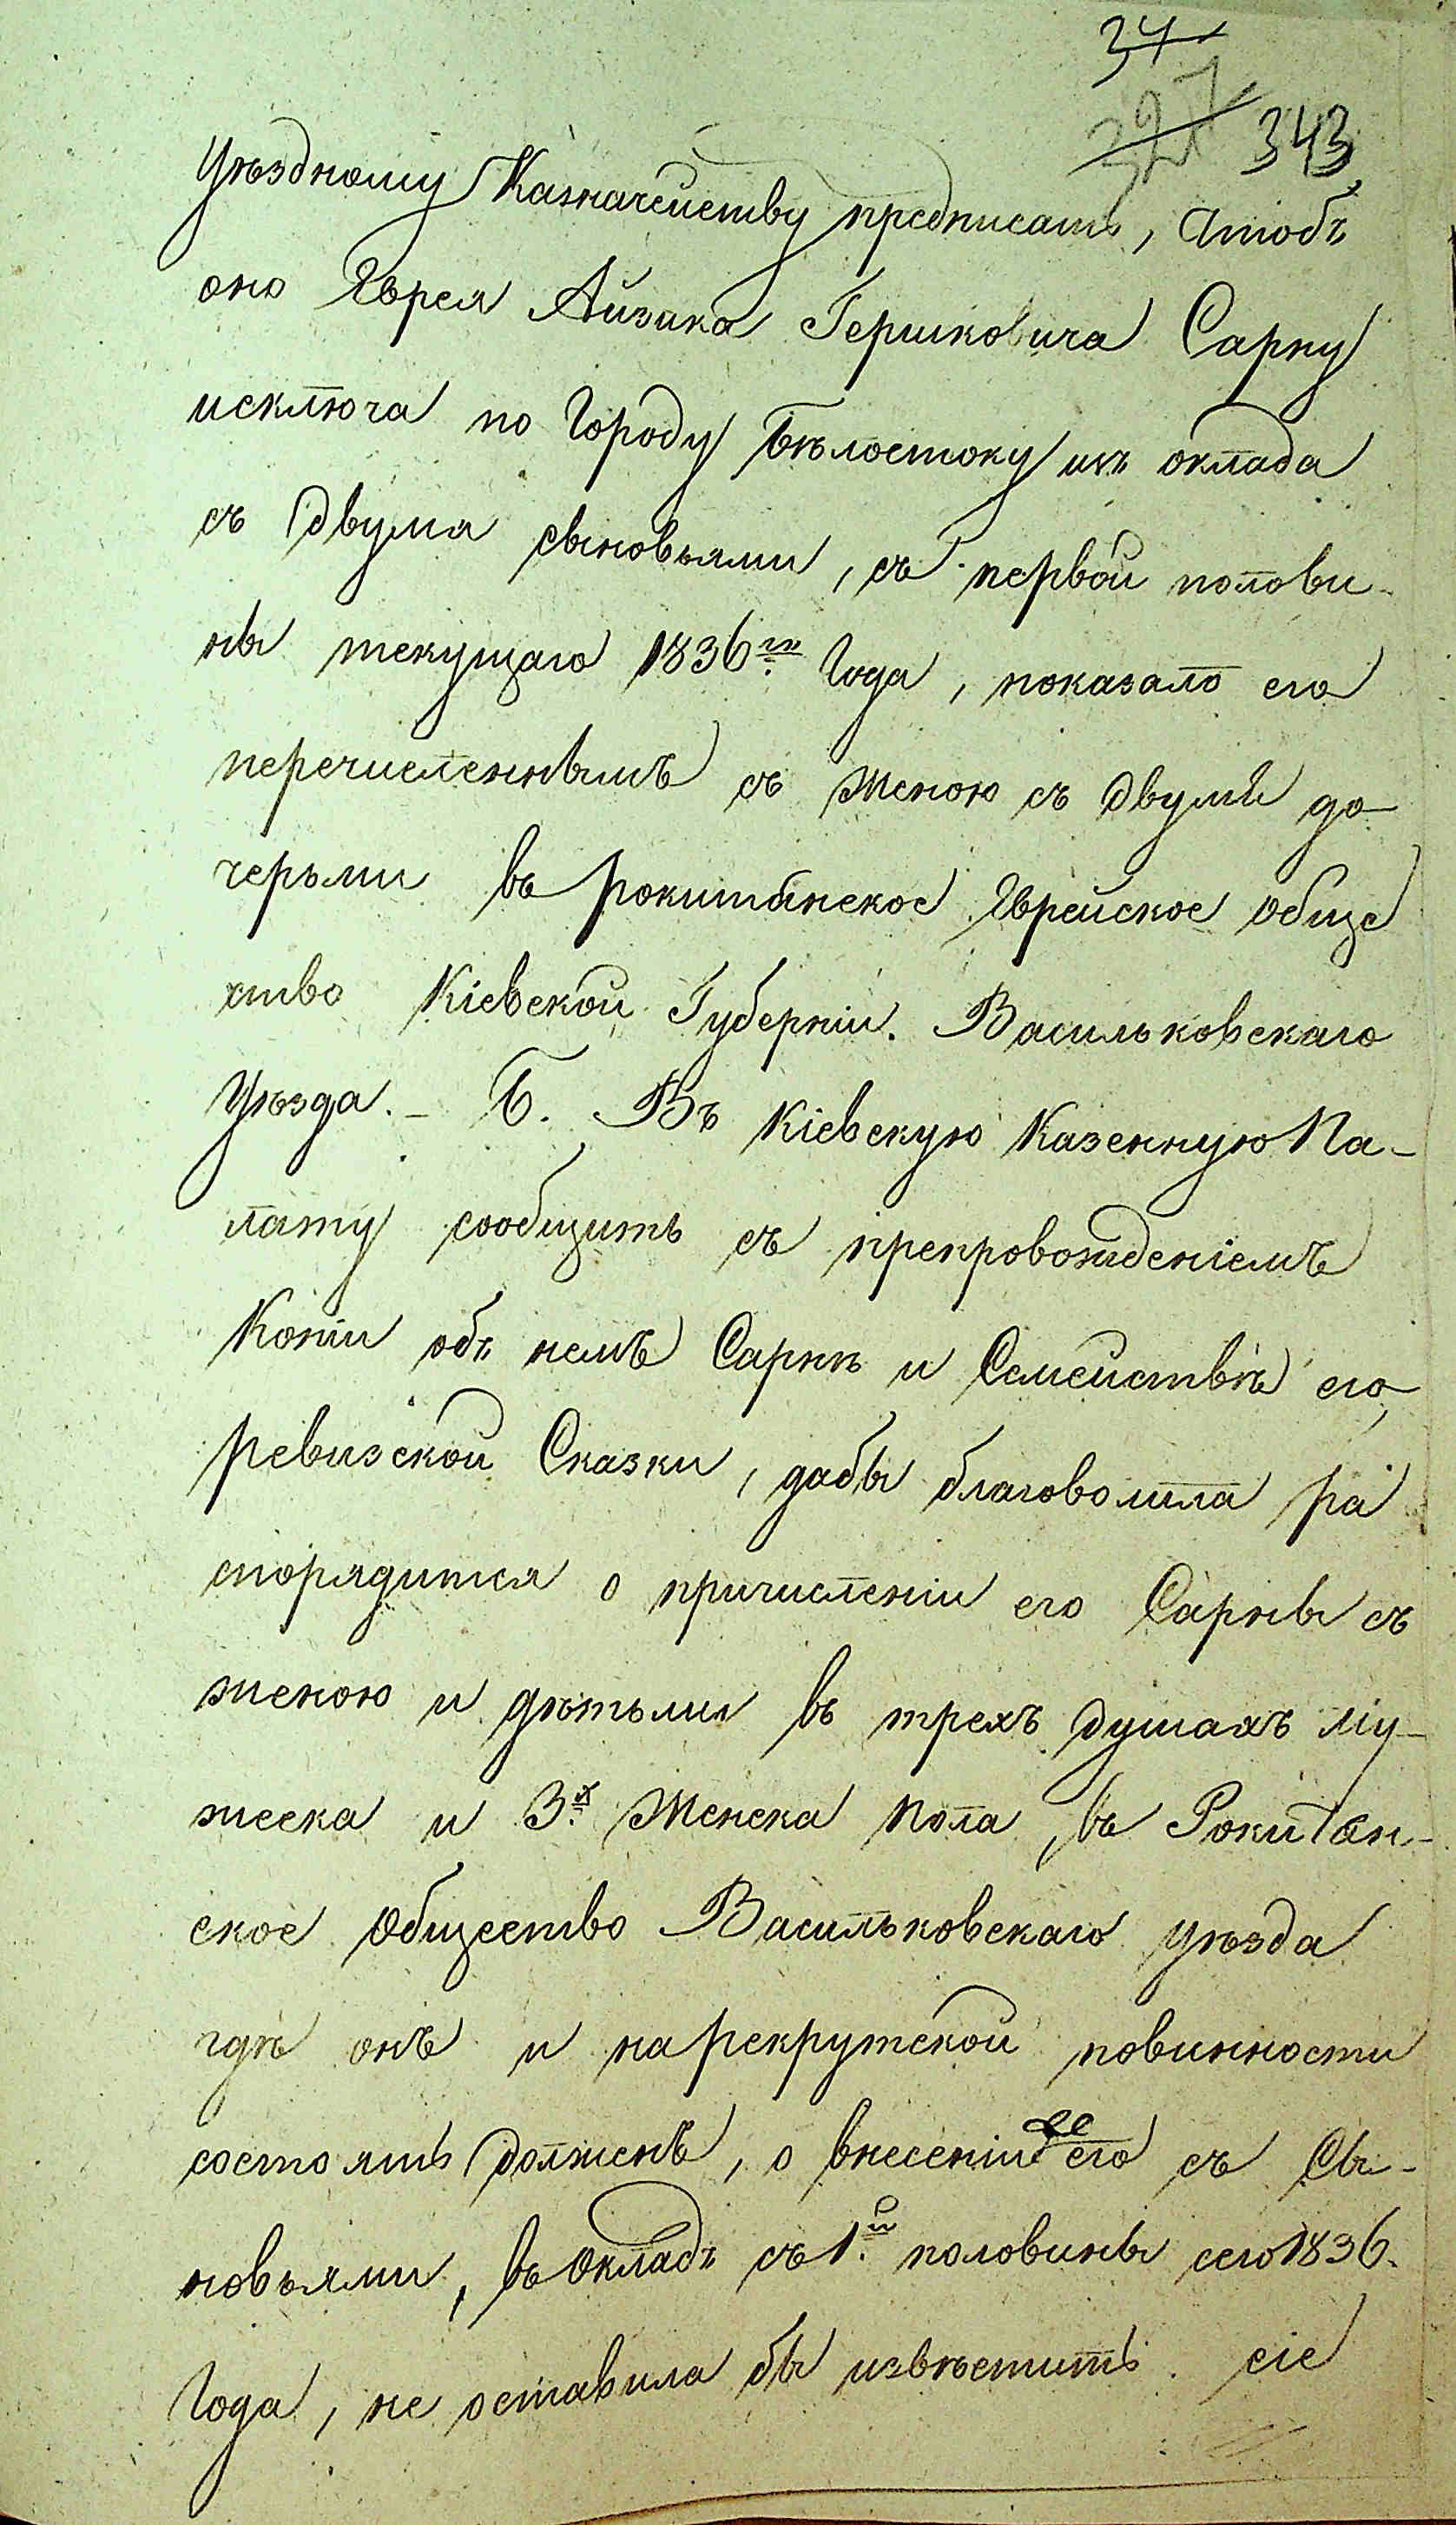 34
397 343
Уѣздному Казначейству предписать, чтобъ
оно Еврея Айзика Гершковича Сарну
исключа по Городу Бѣлостоку изъ оклада
съ двумя сыновьями, съ первой полови-
ны текущаго 1836го Года, показало его
перечисленнымъ съ женою съ двумя до-
черьми въ рокитанское Еврейское обще
ство Кіевской Губерніи. Васильковскаго
Уѣзда. – Б. Въ Кіевскую Казенную Па-
лату сообщить съ препровожденіемъ
Копіи объ немъ Сарнѣ и Семействѣ его,
ревизской Сказки, дабы благоволила ра
спорядится о причисленіи его Сарны съ
женою и дѣтьми въ трехъ душахъ му-
жеска и 3.х Женска пола, въ Рокитан-
ское Общество Васильковскаго уѣзда
гдѣ онъ и на рекрутской повинности
состоять долженъ, о внесеніи же его съ Сы-
новьями, въ Окладъ съ 1.й половины сего 1836.
Года, не оставила бы извѣстить. сіе